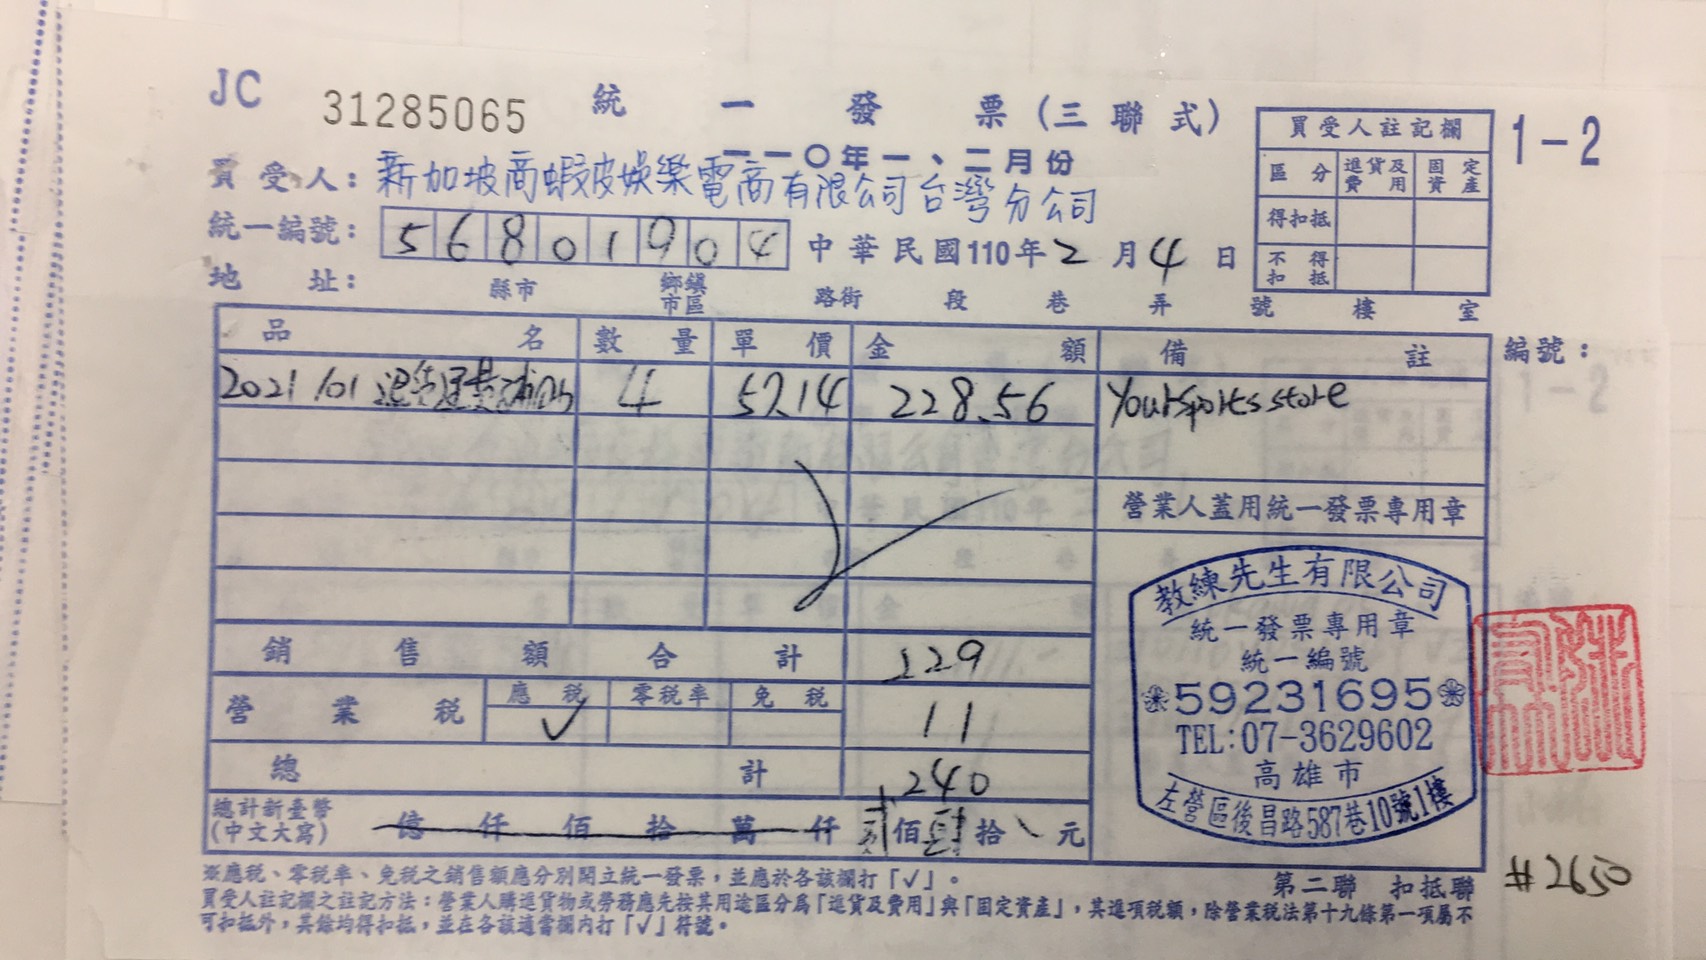 JC 31285065 統一發票(三聯式)
一一〇年一、二月份
1-2
買受人註記欄
區分 進貨及費用 固定資產
得扣抵
不得扣抵
買受人:新加坡商蝦皮娛樂電商有限公司台灣分公司
統一編號:56801904 中華民國110年2月4日
地址: 縣市 鄉鎮市區 路街 段 巷 弄 號 樓 室
品名 數量 單價 金額 備註 編號:
2021/01 運費補助 4 57.14 228.56 Yoursportsstore
營業人蓋用統一發票專用章
銷售額合計 229
營業稅 應稅 零稅率 免稅 11
✓
總計 240
總計新臺幣(中文大寫) 億仟佰拾萬仟貳佰肆拾元
教練先生有限公司
統一發票專用章
統一編號
59231695
TEL:07-3629602
高雄市
左營區後昌路587巷10號1樓
※應稅、零稅率、免稅之銷售額應分別開立統一發票,並應於各該欄打「✓」。
第二聯 扣抵聯
#2650
買受人註記欄之註記方法:營業人購進貨物或勞務應先按其用途區分為「進貨及費用」與「固定資產」,其進項稅額,除營業稅法第十九條第一項屬不
可扣抵外,其餘均得扣抵,並在各該適當欄內打「✓」符號。